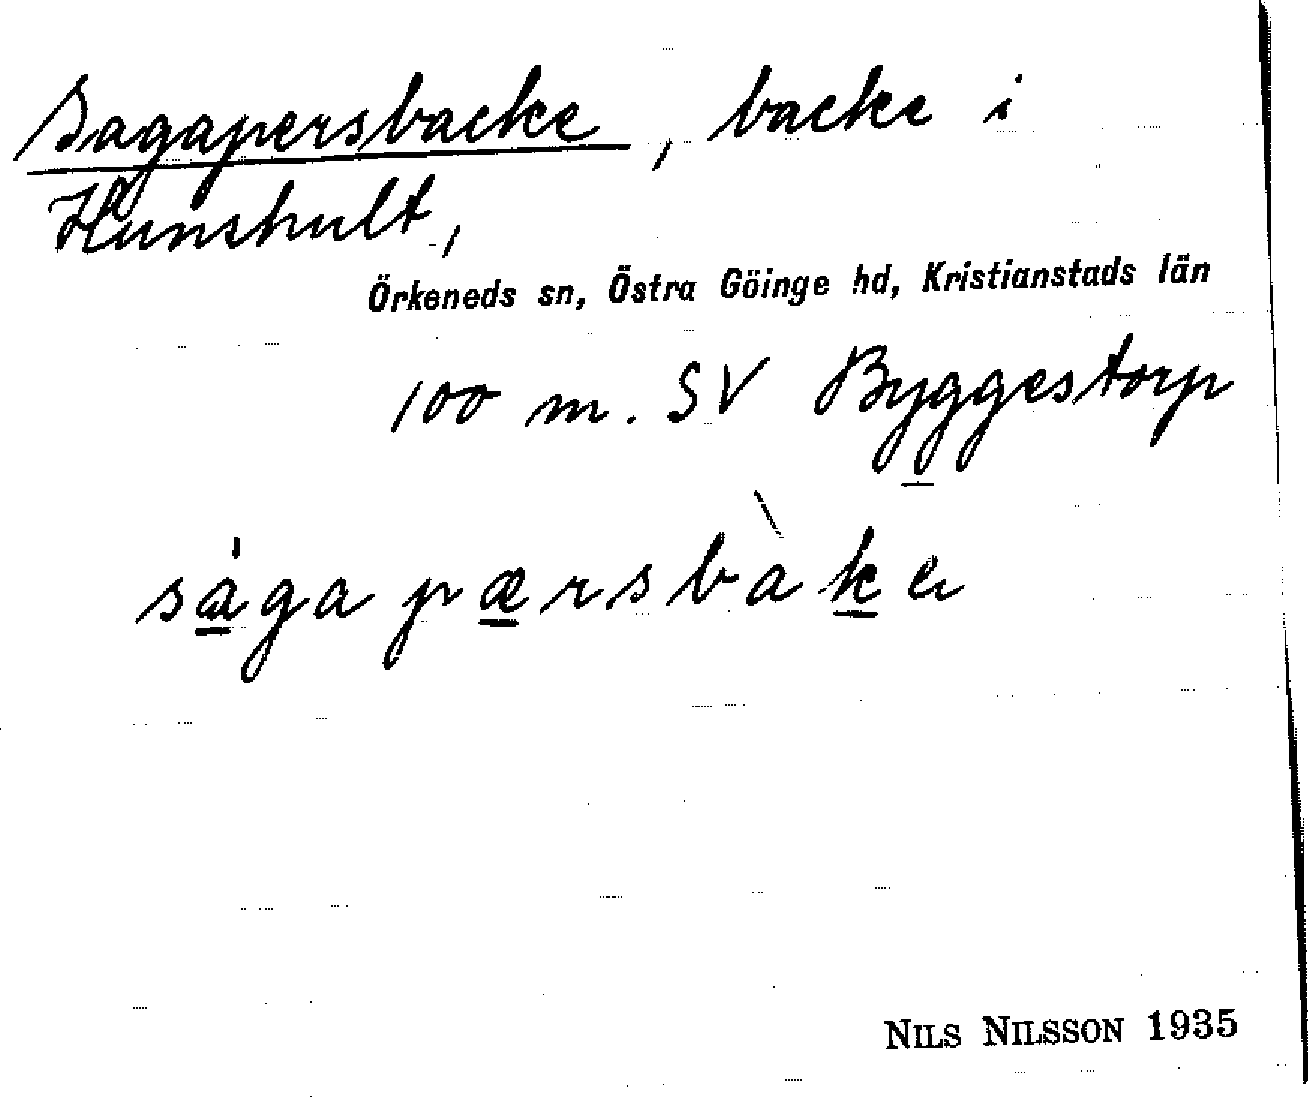 Sagapersbacke, backe i
Hunshult,
Örkeneds sn, Östra Göinge hd, Kristianstads län
100 m. SV Byggestorp
sága pærsbàke
NILS NILSSON 1935